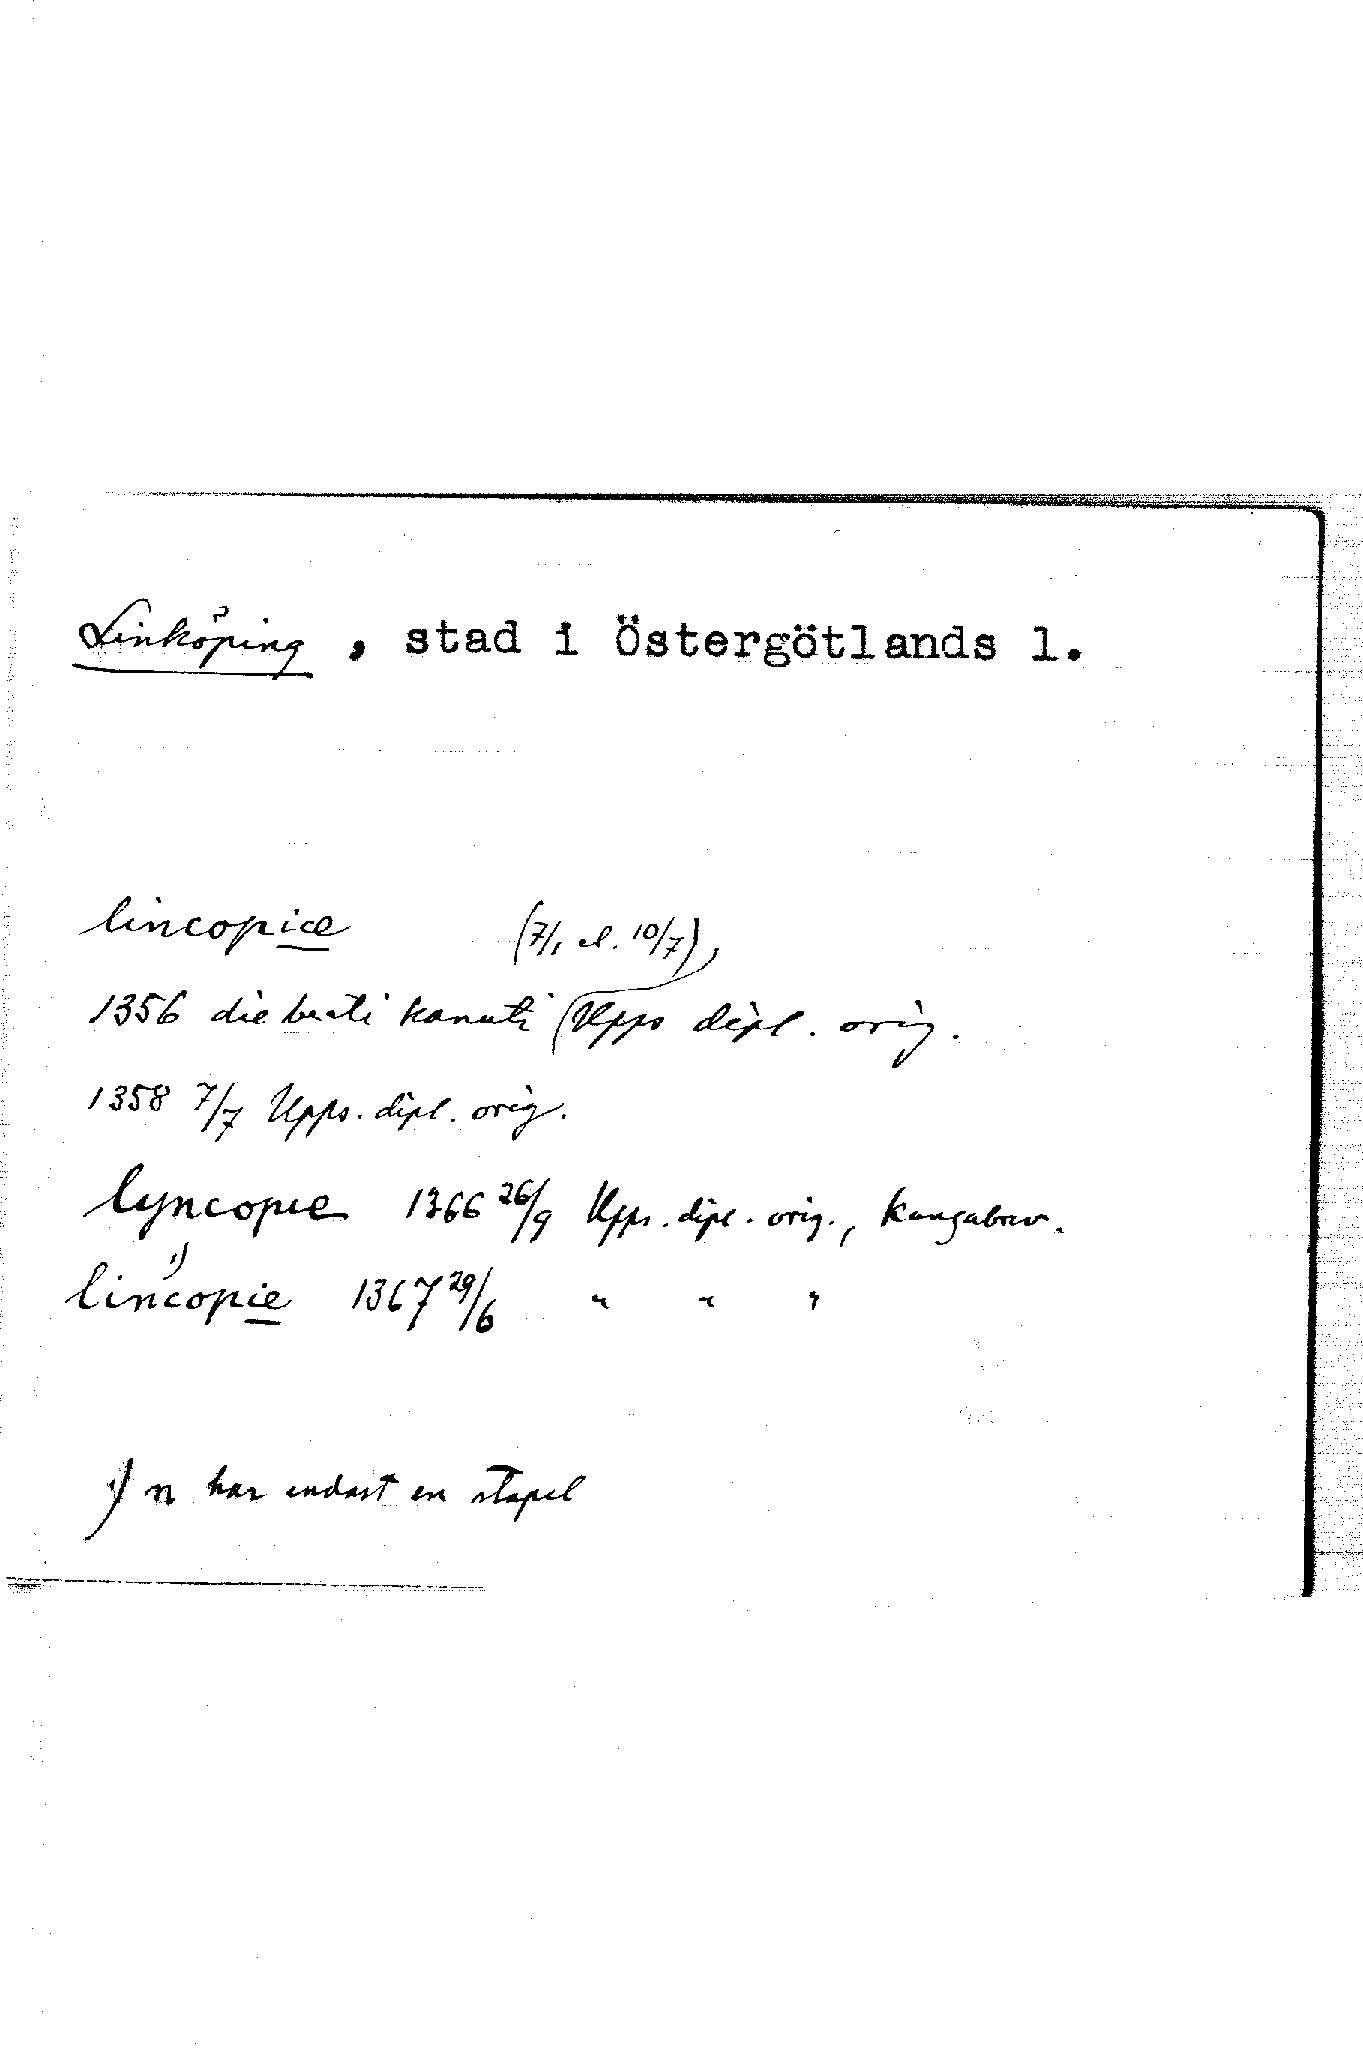 Linköping, stad i Östergötlands l.
lincopie (7/1 el. 10/7),
1356 die beati kanuti Upps dipl. orig.
1358 7/7 Upps. dipl. orig.
lyncopie 1366 26/9 Upps. dipl. orig., Kungabrev.
lincopie 1) 1367 29/6 " " "
1) n har endast en stapel